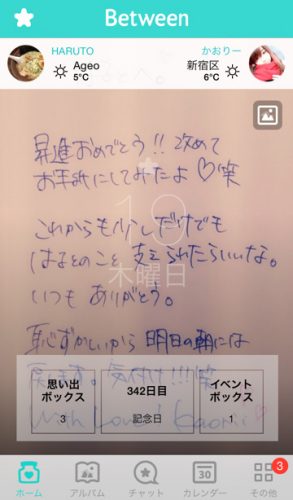 Between
HARUTO
Ageo
5°C
かおりー
新宿区
6°C
昇進おめでとう!! 改めて
お手紙にしてみたよ♡笑
19
これからも少しだけでも
はるとのこと支えられたらいいな。
木曜日
いつもありがとう。
恥ずかしいから明日の朝には
戻します。気付け!!!笑
With Love! Kaori
思い出
ボックス
3
342日目
記念日
イベント
ボックス
1
30
3
ホーム
アルバム
チャット
カレンダー
その他